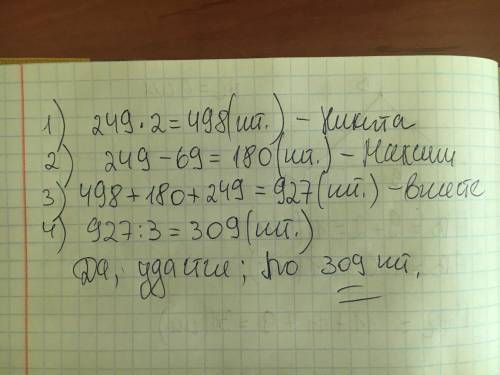 1) 249·2=498(шт.) – Никита
2) 249–69=180(шт.) – Максим
3) 498+180+249=927(шт.) – вместе
4) 927:3=309(шт.)
Да, удастся; по 309 шт.